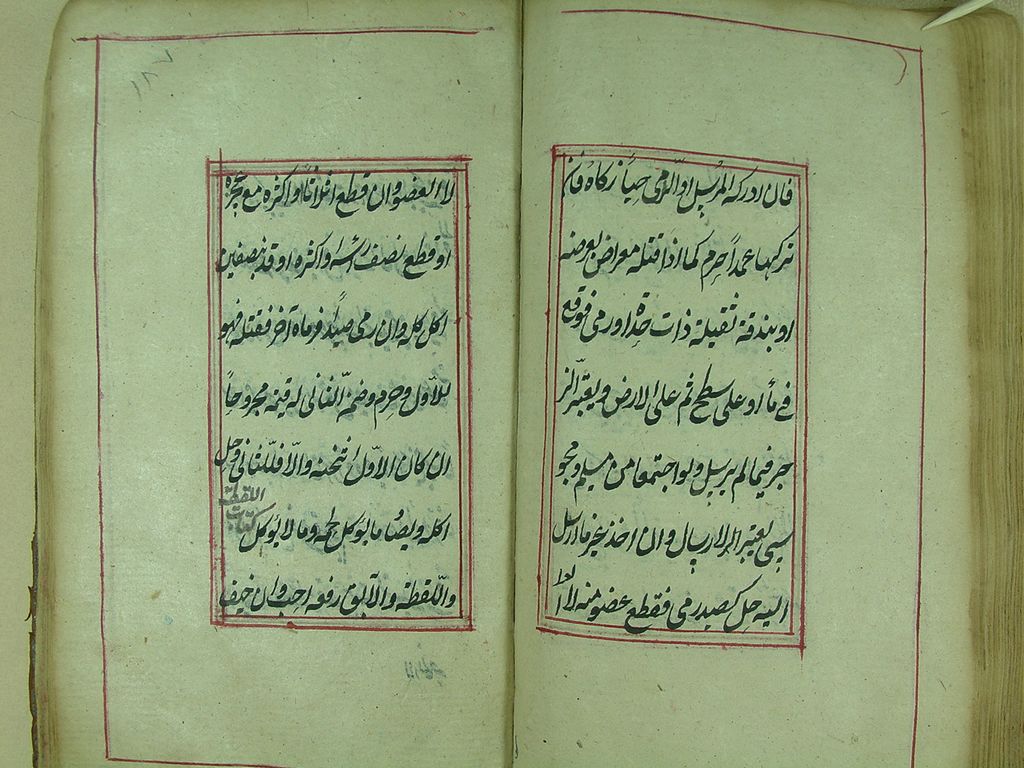 فان ادركه المرسل او الرامى حياً زكاه فان
تركها عمداً حرم كما اذا قتله معراض بعرضه
او بندقة ثقيلة ذات حدة او رمى فوقع
فى مأ او على سطح ثم على الارض ويعتبر الز
جر فيما لم يرسل ولو اجتمعا من مسلم ومجو
سى يعتبر الارسال وان اخذ غير ما ارسل
اليه حل كصيد رمى فقطع عضو منه لا
لا العضو وان قطع اثلاثاً واكثره مع عجزه
او قطع نصف راسه او اكثره او قد بنصفين
اكل كله وان رمى صيداً فرماه آخر فقتله فهو
للاول وحرم وضمن الثانى له قيمته مجروحاً
ان كان الاول اثخنه والا فللثانى وحل
اكله ويصاد ما يؤكل لحمه وما لا يؤكل
كتاب اللقطة
واللقطة والآبق رفعه احب وان خيف
١٨٧